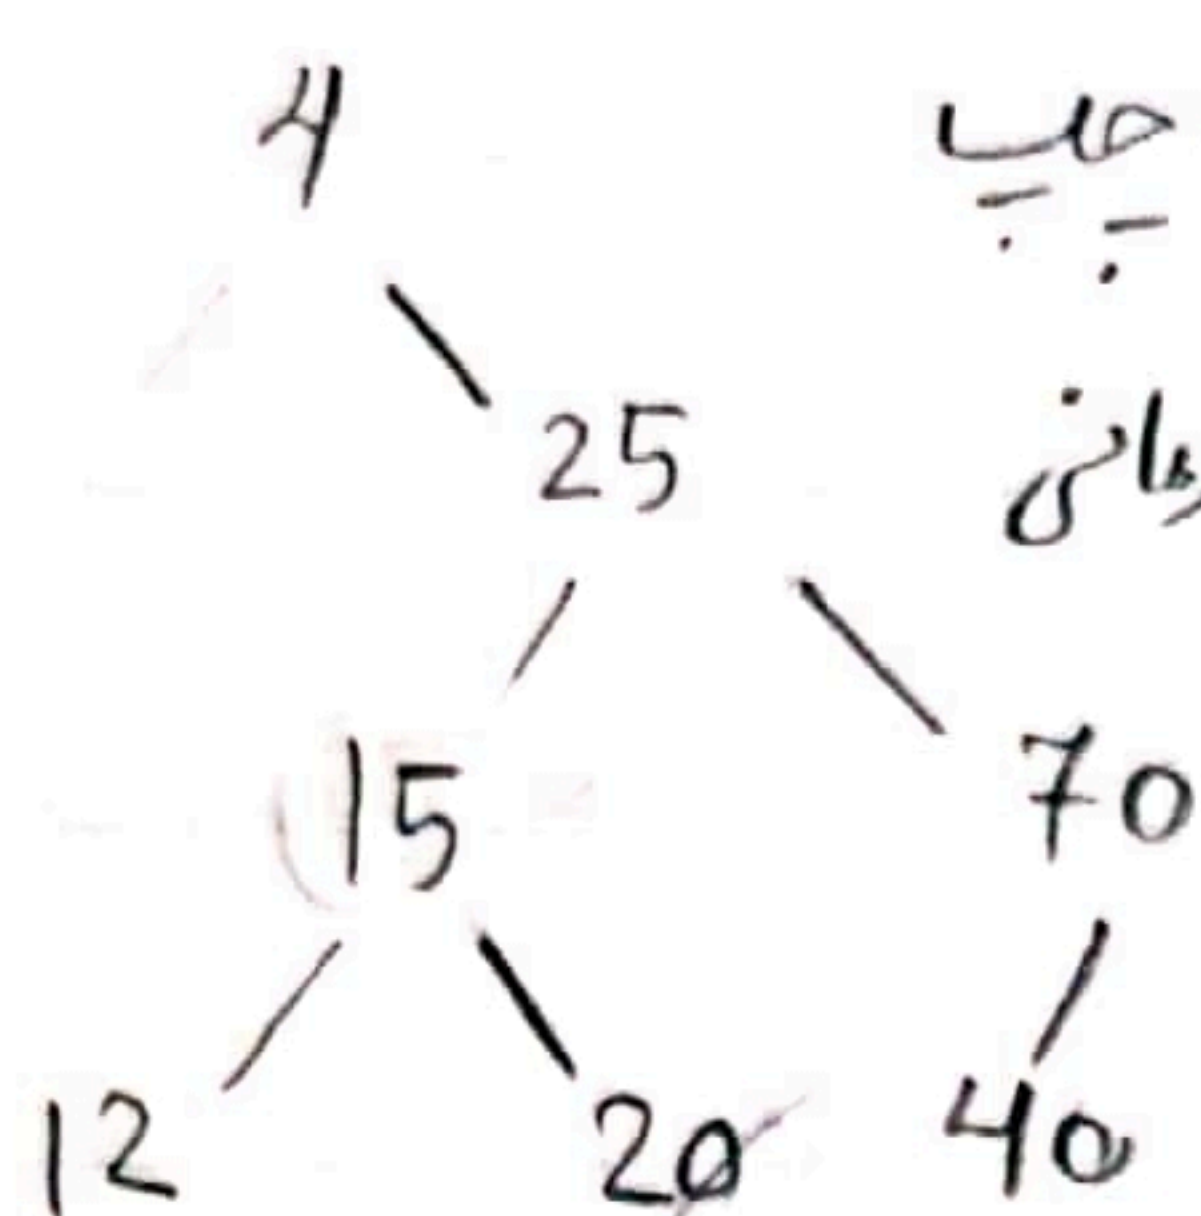 4
25
15 70
12 20 40